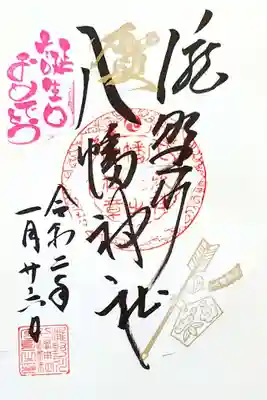 滝野川
八幡神社
賀
誕生日
おめでとう
令和二年
一月廿六日